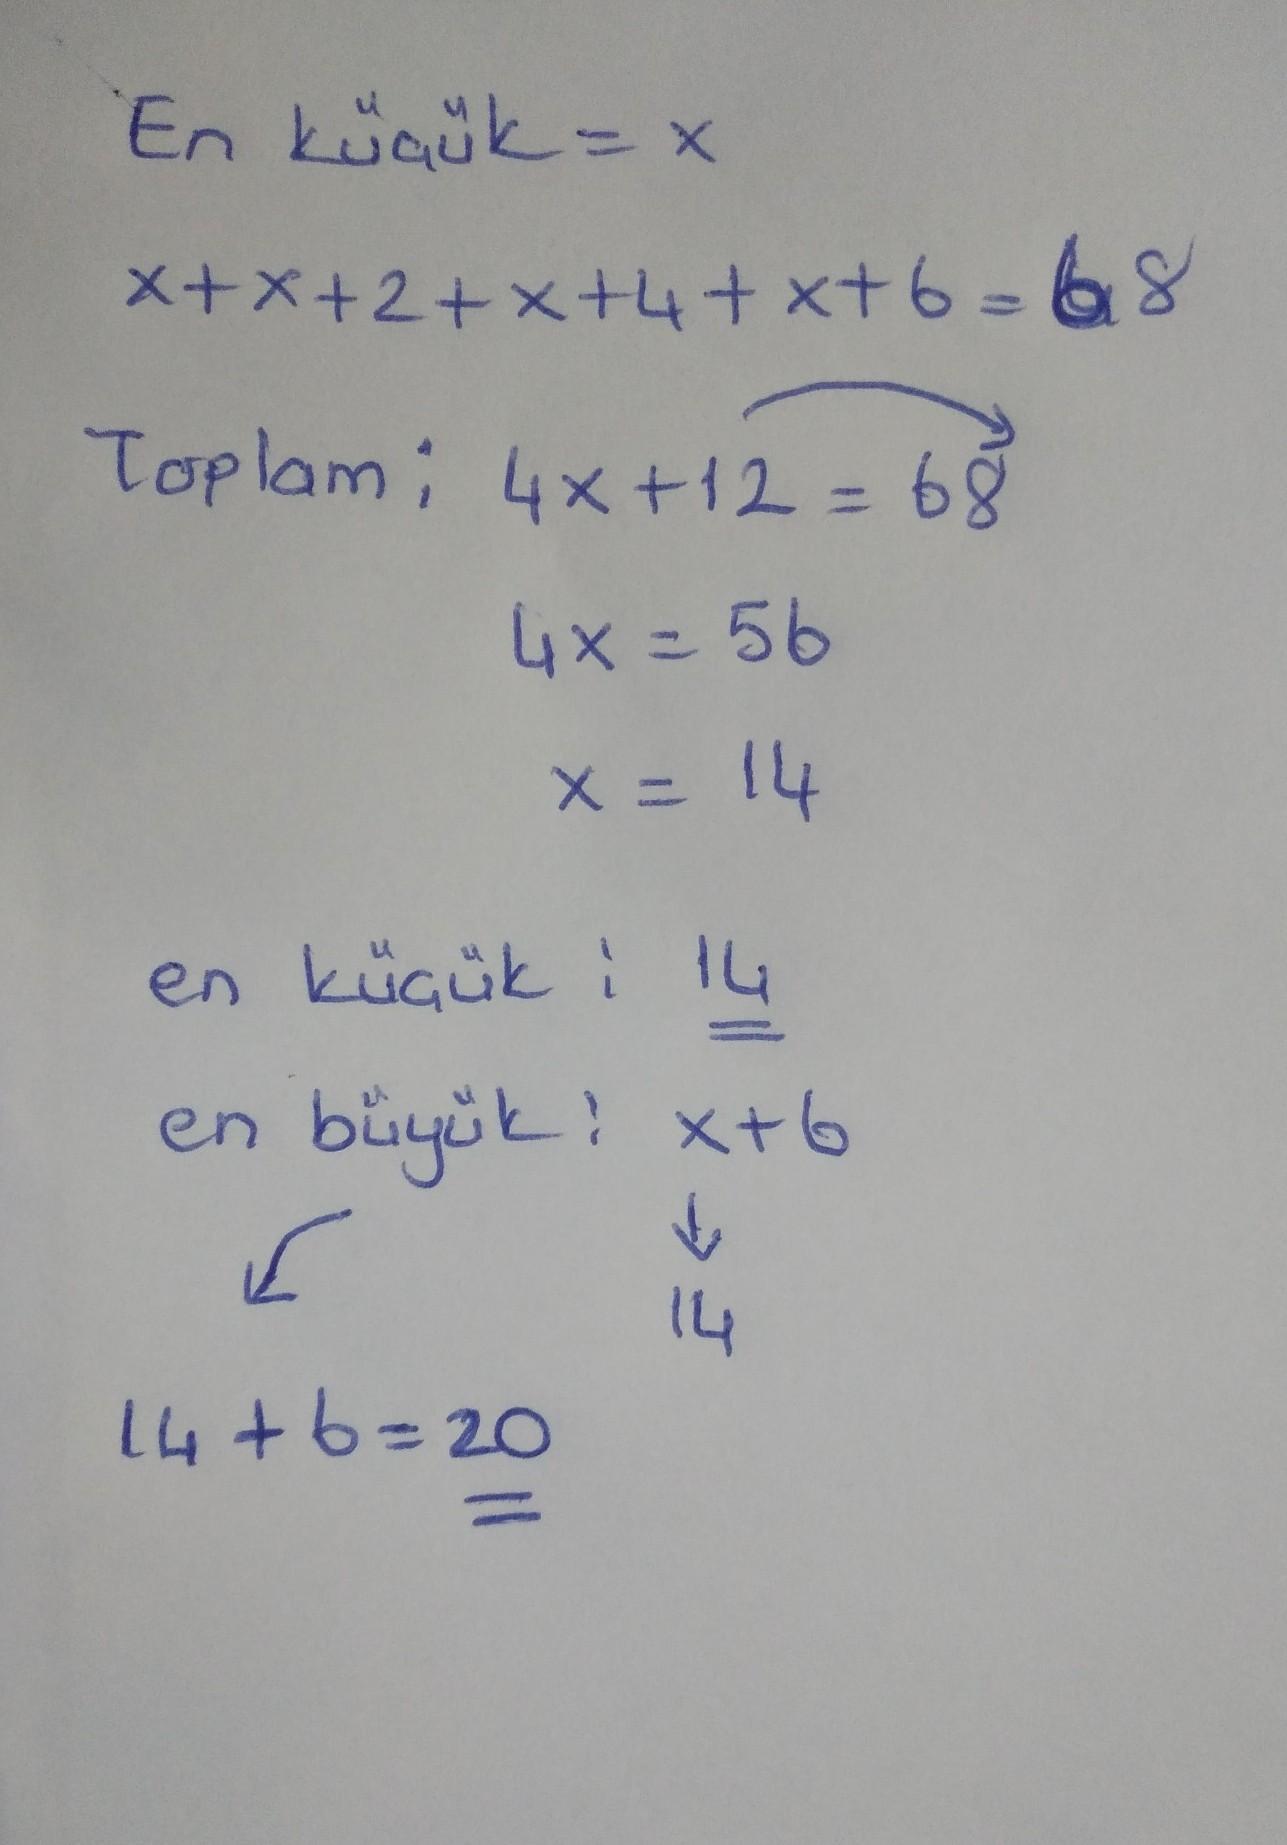 En küçük = x
x + x + 2 + x + 4 + x + 6 = 68
Toplam : 4x + 12 = 68
4x = 56
x = 14
en küçük : 14
en büyük : x + 6
14
14 + 6 = 20